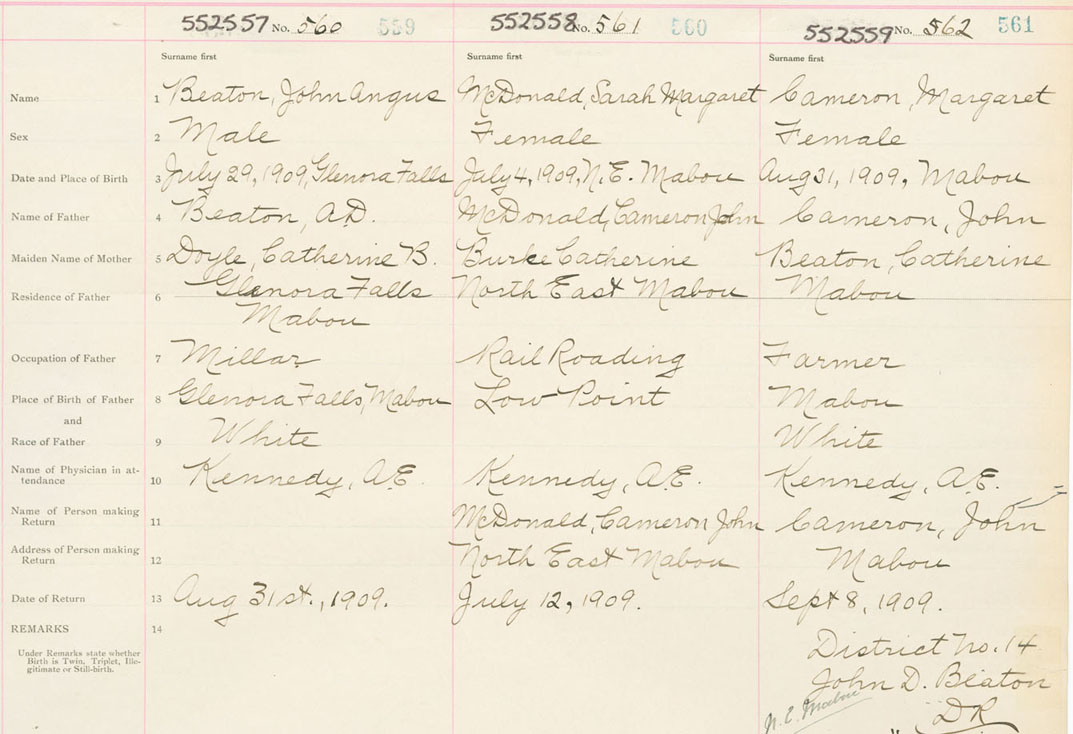 552557 No. 560 559 552558 No. 561 560 552559 No. 562 561
Surname first Surname first Surname first
Name 1 Beaton, John Angus McDonald, Sarah Margaret Cameron, Margaret
Sex 2 Male Female Female
Date and Place of Birth 3 July 29, 1909, Glenora Falls July 4, 1909, N.E. Mabou Aug 31, 1909, Mabou
Name of Father 4 Beaton, A.D. McDonald, Cameron John Cameron, John
Maiden Name of Mother 5 Doyle, Catherine B. Burke Catherine Beaton, Catherine
Residence of Father 6 Glenora Falls North East Mabou Mabou
Mabou
Occupation of Father 7 Millar Rail Roading Farmer
Place of Birth of Father 8 Glenora Falls, Mabou Low Point Mabou
and
Race of Father 9 White White
Name of Physician in at-
tendance 10 Kennedy, A.E. Kennedy, A.E. Kennedy, A.E.
Name of Person making
Return 11 McDonald, Cameron John Cameron, John
Address of Person making
Return 12 North East Mabou Mabou
Date of Return 13 Aug 31st., 1909. July 12, 1909. Sept 8, 1909.
REMARKS 14
Under Remarks state whether
Birth is Twin, Triplet, Ille-
gitimate or Still-birth.
District No. 14
John D. Beaton
N.E. Mabou
DR